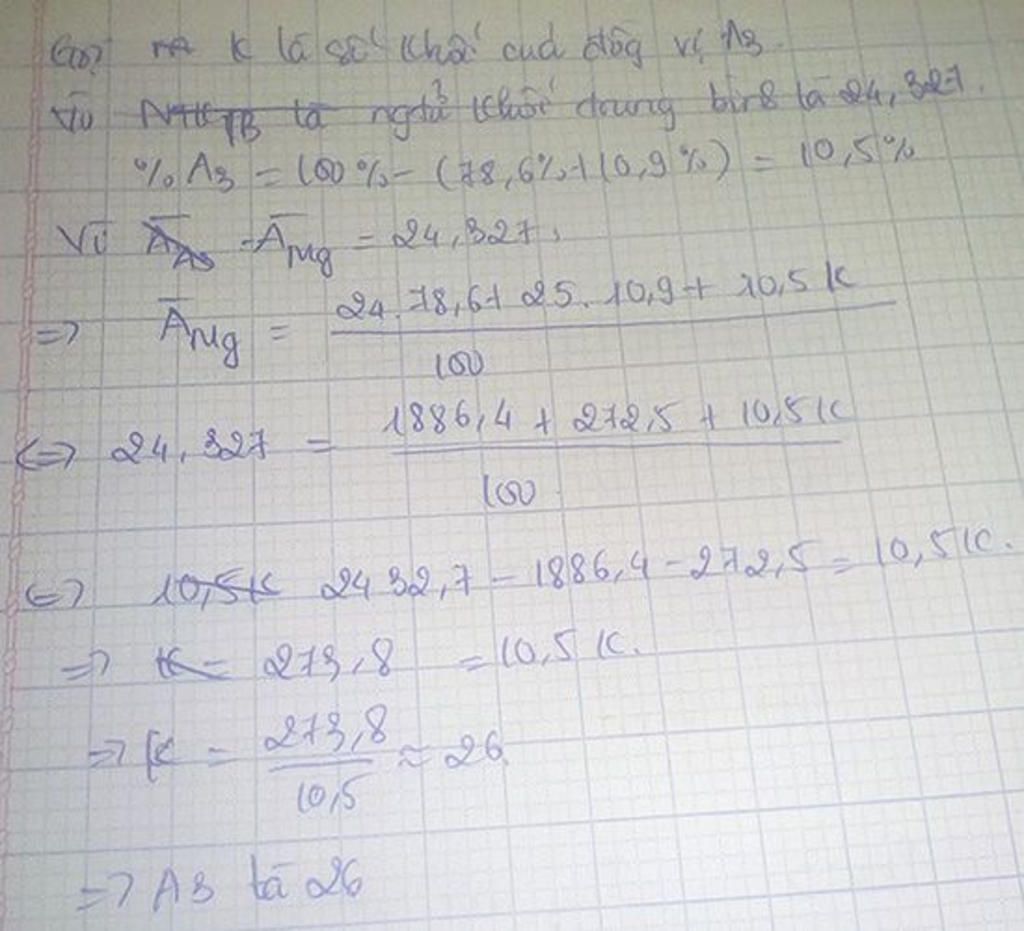 Gọi K là số khối của đồng vị A3.
Vì NTK TB là ngtử khối trung bình là 24,327.
% A3 = 100% - (78,6% + 10,9%) = 10,5%
Vì A̅A3 A̅Mg = 24,327.
=> A̅Mg = (24.78,6 + 25.10,9 + 10,5K) / 100
<=> 24,327 = (1886,4 + 272,5 + 10,5K) / 100
<=> 10,5K 2432,7 - 1886,4 - 272,5 = 10,5K.
=> K = 273,8 = 10,5K.
=> K = 273,8 / 10,5 ≈ 26
=> A3 là 26